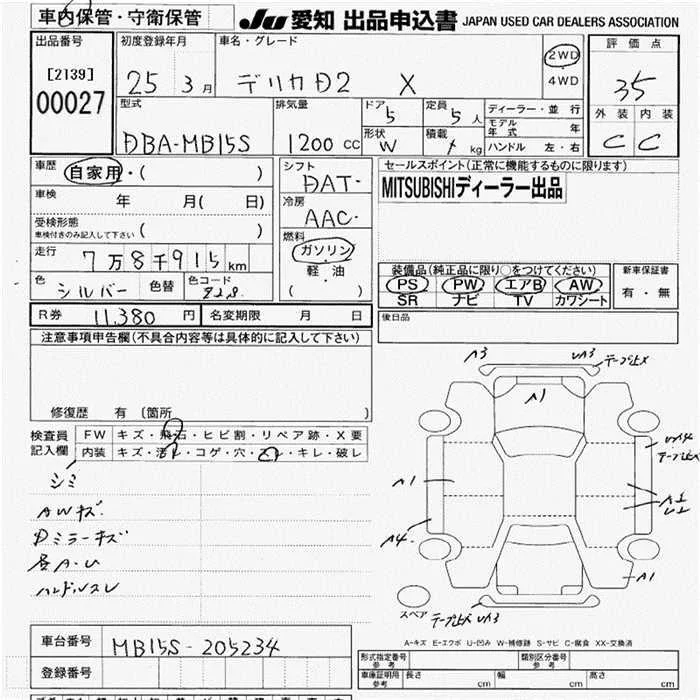 車内保管・守衛保管
JU 愛知 出品申込書 JAPAN USED CAR DEALERS ASSOCIATION
出品番号
[2139]
00027
初度登録年月
25 3月
車名・グレード
デリカD2 X
2WD
4WD
評価点
35
外装 内装
C C
型式
DBA-MB15S
排気量
1200 CC
ドア
5
形状
W
定員
5人
積載
kg
ディーラー・並 行
モデル年式 年
ハンドル 左・右
車歴
自家用・( )
車検
年 月( 日)
受検形態
車検付きのみ記入して下さい ( )
走行
7万8千915km
色
シルバー
色替
色コード
Z2S
シフト
DAT・
冷房
AAC・
燃料
ガソリン
軽・油
( )
セールスポイント(正常に機能するものに限ります)
MITSUBISHIディーラー出品
装備品(純正品に限り○をつけてください)
PS PW エアB AW
SR ナビ TV カワシート
新車保証書
有・無
R券 11,380 円
名変期限 月 日
後日品
注意事項申告欄(不具合内容等は具体的に記入して下さい)
修復歴 有 〔箇所 〕
検査員記入欄
FW キズ・飛石・ヒビ割・リペア跡・X要
内装 キズ・汚レ・コゲ・穴・スレ・キレ・破レ
シミ
AWキズ
Dミラーキズ
ハンドルスレ
A3
UA3
A1
A1
A4
A1
スペア
UA3
A-キズ E-エクボ U-凹み W-補修跡 S-サビ C-腐食 XX-交換済
車台番号 MB15S-205234
登録番号
形式指定番号 参考
類別区分番号 参考
車庫証明用 参考
長さ cm
幅 cm
高さ cm